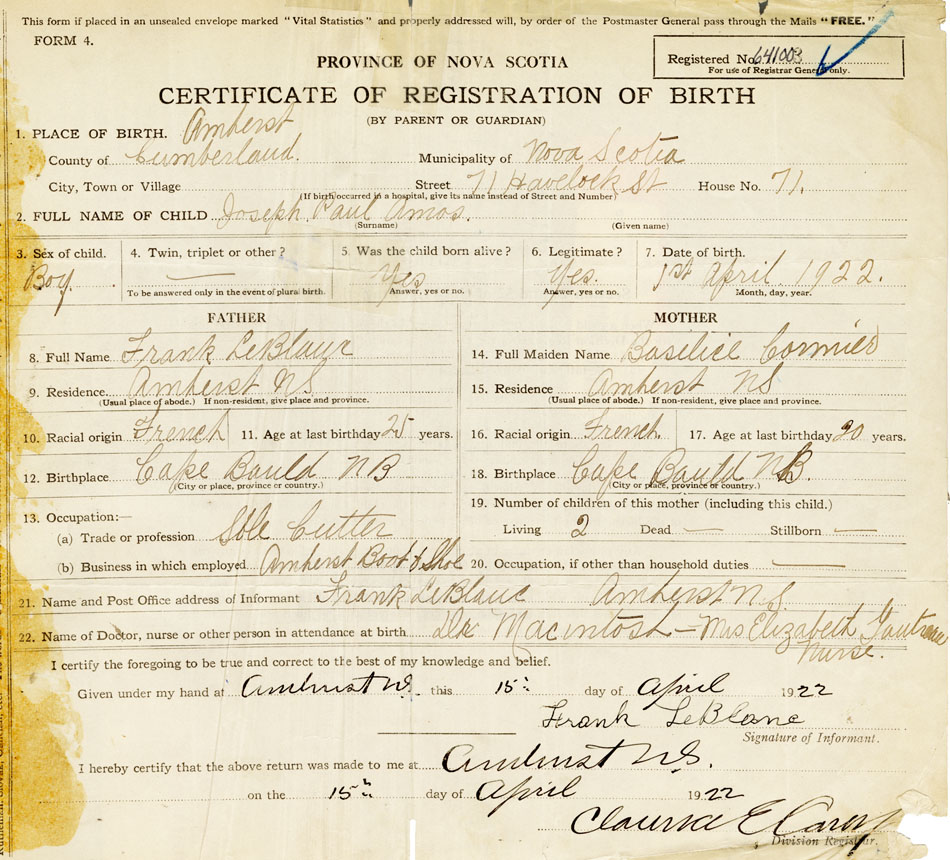 This form if placed in an unsealed envelope marked "Vital Statistics" and properly addressed will, by order of the Postmaster General pass through the Mails "FREE."
FORM 4.
Registered No. 641003
For use of Registrar General only.
PROVINCE OF NOVA SCOTIA
CERTIFICATE OF REGISTRATION OF BIRTH
(BY PARENT OR GUARDIAN)
1. PLACE OF BIRTH. Amherst
County of Cumberland. Municipality of Nova Scotia
City, Town or Village Street 71 Havelock St House No. 71.
(If birth occurred in a hospital, give its name instead of Street and Number)
2. FULL NAME OF CHILD Joseph Paul Amos.
(Surname) (Given name)
3. Sex of child. 4. Twin, triplet or other? 5. Was the child born alive? 6. Legitimate? 7. Date of birth.
Boy. — Yes Yes. 1st April 1922.
To be answered only in the event of plural birth. Answer, yes or no. Answer, yes or no. Month, day, year.
FATHER MOTHER
8. Full Name Frank LeBlanc 14. Full Maiden Name Basilice Cormier
9. Residence. Amherst NS 15. Residence Amherst NS
(Usual place of abode.) If non-resident, give place and province. (Usual place of abode.) If non-resident, give place and province.
10. Racial origin French 11. Age at last birthday 25 years. 16. Racial origin French 17. Age at last birthday 20 years.
12. Birthplace Cape Bauld NB 18. Birthplace Cape Bauld NB.
(City or place, province or country.) (City or place, province or country.)
13. Occupation:— 19. Number of children of this mother (including this child.)
(a) Trade or profession Sole Cutter Living 2 Dead — Stillborn —
(b) Business in which employed Amherst Boot & Shoe 20. Occupation, if other than household duties —
21. Name and Post Office address of Informant Frank LeBlanc Amherst N.S.
22. Name of Doctor, nurse or other person in attendance at birth Dr Macintosh - Mrs Elizabeth
Nurse.
I certify the foregoing to be true and correct to the best of my knowledge and belief.
Given under my hand at Amherst NS. this 15th day of April 1922
Frank LeBlanc
Signature of Informant.
I hereby certify that the above return was made to me at Amherst N.S.
on the 15th day of April 1922
Clarence E
Division Registrar.